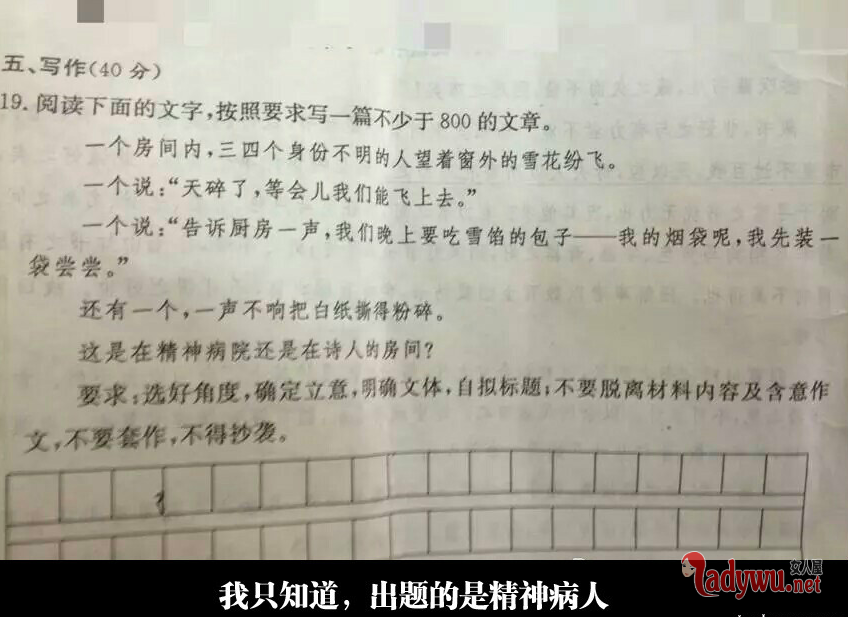 五、写作(40分)
19.阅读下面的文字,按照要求写一篇不少于800的文章。
一个房间内,三四个身份不明的人望着窗外的雪花纷飞。
一个说:“天碎了,等会儿我们能飞上去。”
一个说:“告诉厨房一声,我们晚上要吃雪馅的包子——我的烟袋呢,我先装一
袋尝尝。”
还有一个,一声不响把白纸撕得粉碎。
这是在精神病院还是在诗人的房间?
要求:选好角度,确定立意,明确文体,自拟标题;不要脱离材料内容及含意作
文,不要套作,不得抄袭。
我只知道，出题的是精神病人
女人屋
ladywu.net